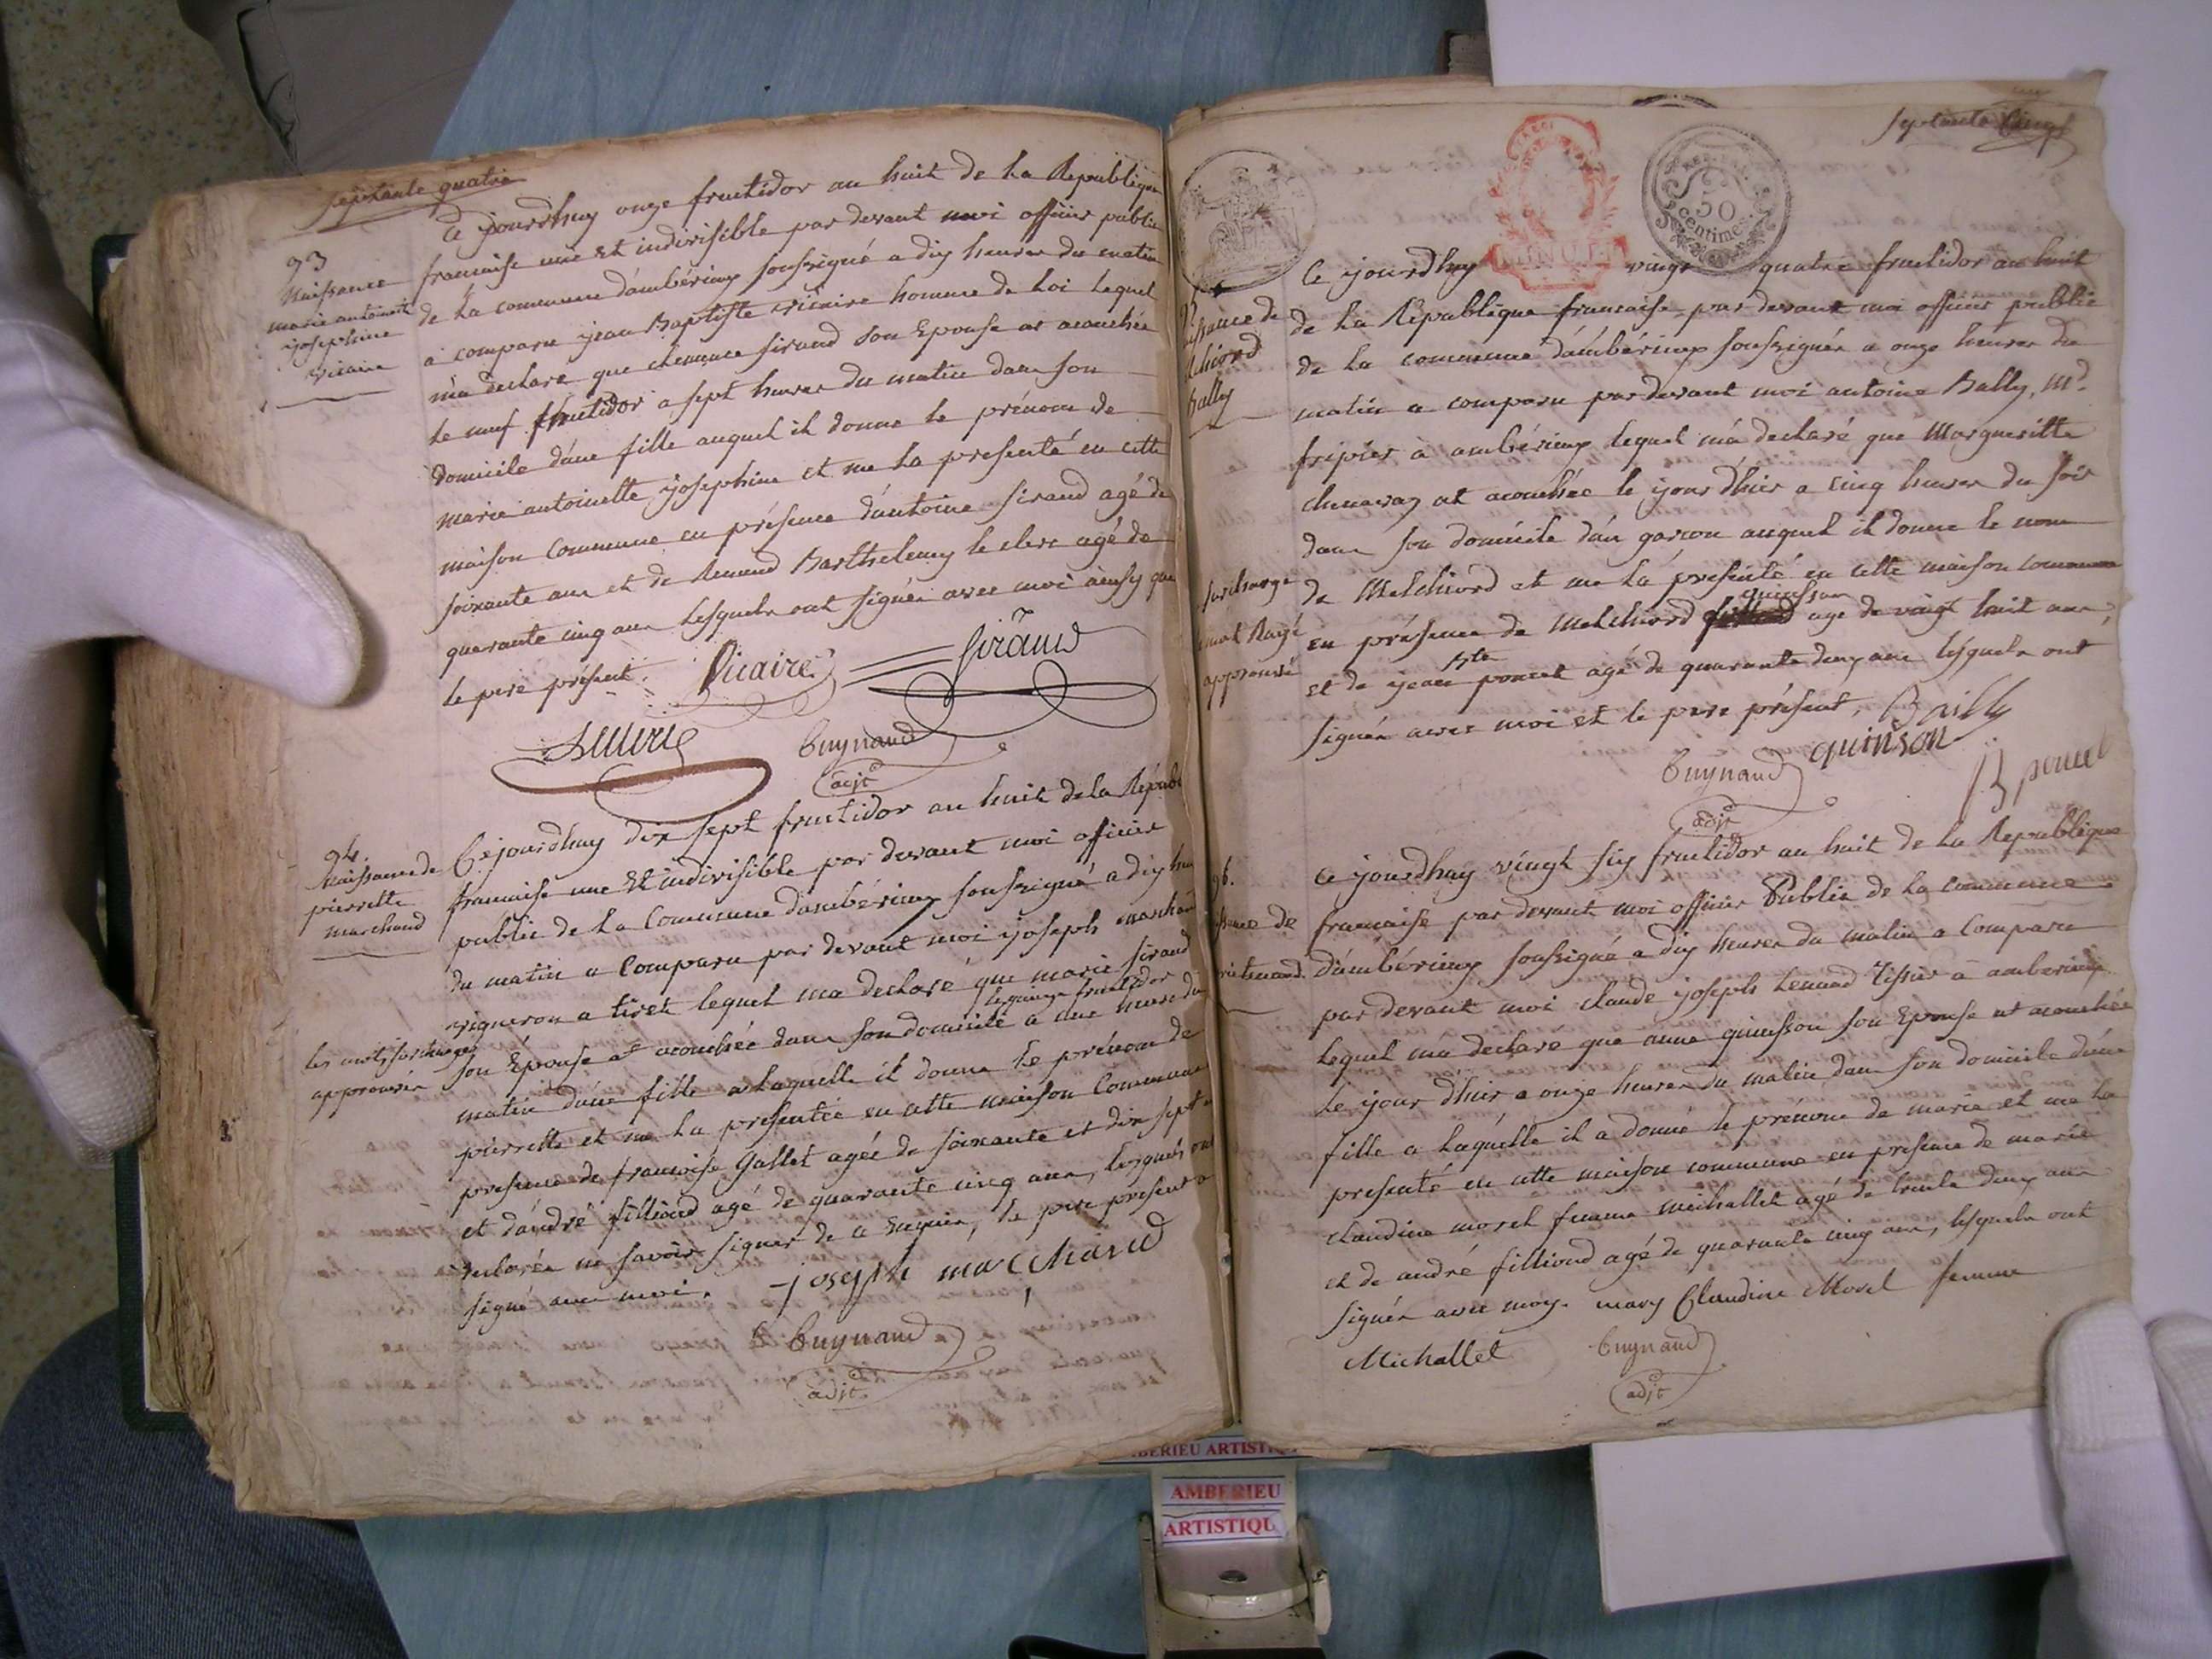 septante quatre
93
Naissance
marie antoinette
josephine
vicaire
Ce jourdhuy onze fructidor an huit de la Republique
francaise une et indivisible par devant moi officier public
de la commune d'ambérieux soussigné a dix heures du matin
a comparu jean Baptiste vicaire homme de loi lequel
m'a declare que clemence sirand son Epouse at acouchée
le neuf fructidor a sept heures du matin dans son
domicile d'une fille auquel il donne le prénom de
marie antoinette josephine et me la presenté en cette
maison commune en présence d'antoine sirand agé de
soixante ans et de Renaud Barthelemy le clerc agé de
quarante cinq ans lesquels ont signés avec moi ainsy que
le pere présent.
Vicaire
Sirand
Guynand
adjt
94.
Naissance de
pierrette
marchand
les mots surchargés
approuvés
Cejourdhuy dix sept fructidor an huit de la Républ
francaise une et indivisible par devant moi officier
public de la Commune d'ambérieux soussigné a dix heu
du matin a Comparu par devant moi joseph marchan
vigneron a tiret lequel m'a declaré que marie sirand
le quinze fructidor
son Epouse at acouchée dans son domicile a une heure du
matin d'une fille a laquelle il donne le prénom de
pierrette et me la présentée en cette maison Commune
presence de francoise Gallet agée de soixante et dix sept
et d'andré filliond agé de quarante cinq ans, lesquels on
declarés ne savoir signer de ce Enquis, le pere present a
signé avec moi.
joseph marchand
Guynand
adjt
septante Cinq
50
centimes
Ce jourdhuy vingt quatre fructidor an huit
de la Republique francaise par devant moi officier public
de la commune d'ambérieux soussignés a onze heures du
matin a comparu par devant moi antoine Bally, md.
fripier a ambérieux lequel m'a declaré que Margueritte
chenavaz at acouchée le jour d'hier a cinq heures du soir
dans son domicile d'un garcon auquel il donne le nom
de Melchiord et me la présenté en cette maison commune
quinsson
en présence de Melchiord agé de vingt huit ans,
Bte
et de jean poncet agé de quarante deux ans lesquels ont
signés avec moi et le pere présent,
issance de
Melchiord
Bally
surcharge
mot Rayé
approuvé
Bailly
quinson
Guynand
adjt
B poncet
96.
issance de
Ce jourdhuy vingt six fructidor an huit de la Republique
francaise par devant moi officier Public de la commune
d'ambérieux soussigné a dix heures du matin a comparu
par devant moi claude joseph tenand tissier a amberieux
lequel m'a declare que anne quinsson son Epouse at acouchée
le jour d'hier a onze heures du matin dans son domicile d'une
fille a laquelle il a donné le prénom de marie et me la
presenté en cette maison commune en presence de marie
claudine morel femme michallet agé de trente deux ans
et de andré filliond agé de quarante cinq ans, lesquels ont
signés avec moy. mary Claudine Morel femme
Michallet
Guynand
adjt
AMBERIEU ARTISTI
AMBERIEU
ARTISTIQU